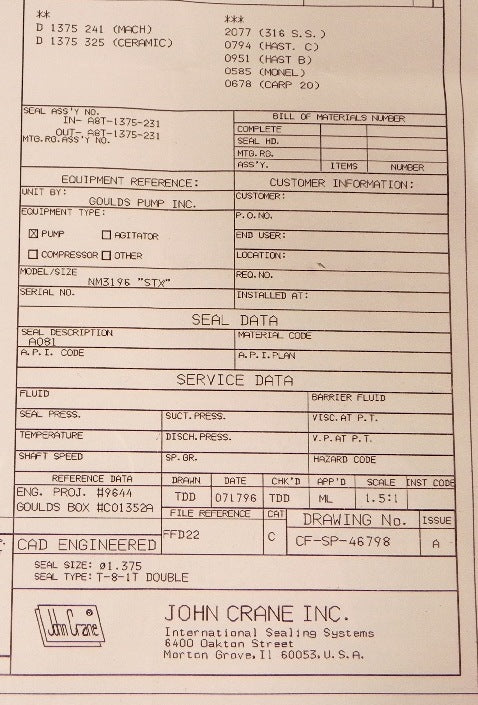 **
D 1375 241 (MACH)
D 1375 325 (CERAMIC)
***
2077 (316 S.S.)
0794 (HAST. C)
0951 (HAST B)
0585 (MONEL)
0678 (CARP 20)
SEAL ASS'Y NO.
IN- A8T-1375-231
OUT- A8T-1375-231
MTG.RG.ASS'Y NO.
BILL OF MATERIALS NUMBER
COMPLETE
SEAL HD.
MTG.RG.
ASS'Y. ITEMS NUMBER
EQUIPMENT REFERENCE:
UNIT BY:
GOULDS PUMP INC.
EQUIPMENT TYPE:
☒ PUMP ☐ AGITATOR
☐ COMPRESSOR ☐ OTHER
MODEL/SIZE
NM3196 "STX"
SERIAL NO.
CUSTOMER INFORMATION:
CUSTOMER:
P.O.NO.
END USER:
LOCATION:
REQ.NO.
INSTALLED AT:
SEAL DATA
SEAL DESCRIPTION
A081
MATERIAL CODE
A.P.I. CODE
A.P.I.PLAN
SERVICE DATA
FLUID
BARRIER FLUID
SEAL PRESS. SUCT.PRESS. VISC.AT P.T.
TEMPERATURE DISCH.PRESS. V.P.AT P.T.
SHAFT SPEED SP.GR. HAZARD CODE
REFERENCE DATA
ENG. PROJ. #9644
GOULDS BOX #C01352A
DRAWN DATE CHK'D APP'D SCALE INST CODE
TDD 071796 TDD ML 1.5:1
FILE REFERENCE CAT DRAWING No. ISSUE
CAD ENGINEERED FFD22 C CF-SP-46798 A
SEAL SIZE: ø1.375
SEAL TYPE: T-8-1T DOUBLE
John Crane ®
JOHN CRANE INC.
International Sealing Systems
6400 Oakton Street
Morton Grove, Il 60053, U.S.A.